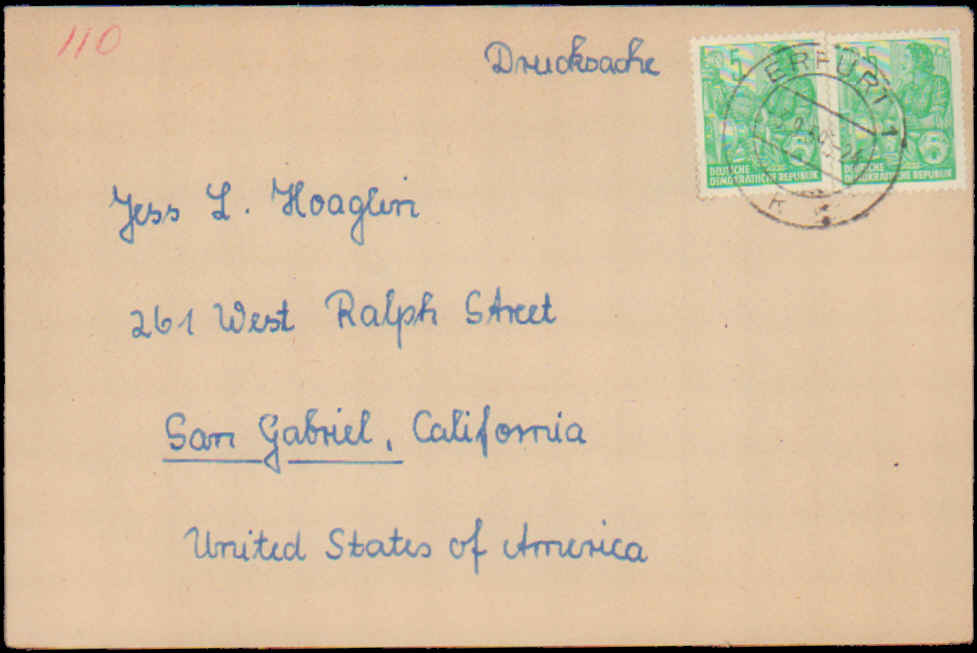 110
Drucksache
5 5
DEUTSCHE DEMOKRATISCHE REPUBLIK
DEUTSCHE DEMOKRATISCHE REPUBLIK
ERFURT 1
Jess L. Hoaglin
261 West Ralph Street
San Gabriel, California
United States of America